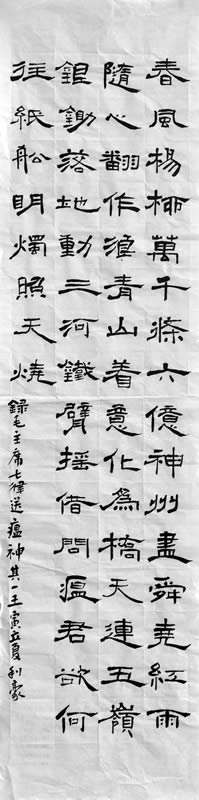 春風楊柳萬千條六億神州盡舜堯紅雨
隨心翻作浪青山着意化為橋天連五嶺
銀鋤落地動三河鐵臂搖借問瘟君欲何
往紙船明燭照天燒
錄毛主席七律送瘟神其一壬寅立夏利豪